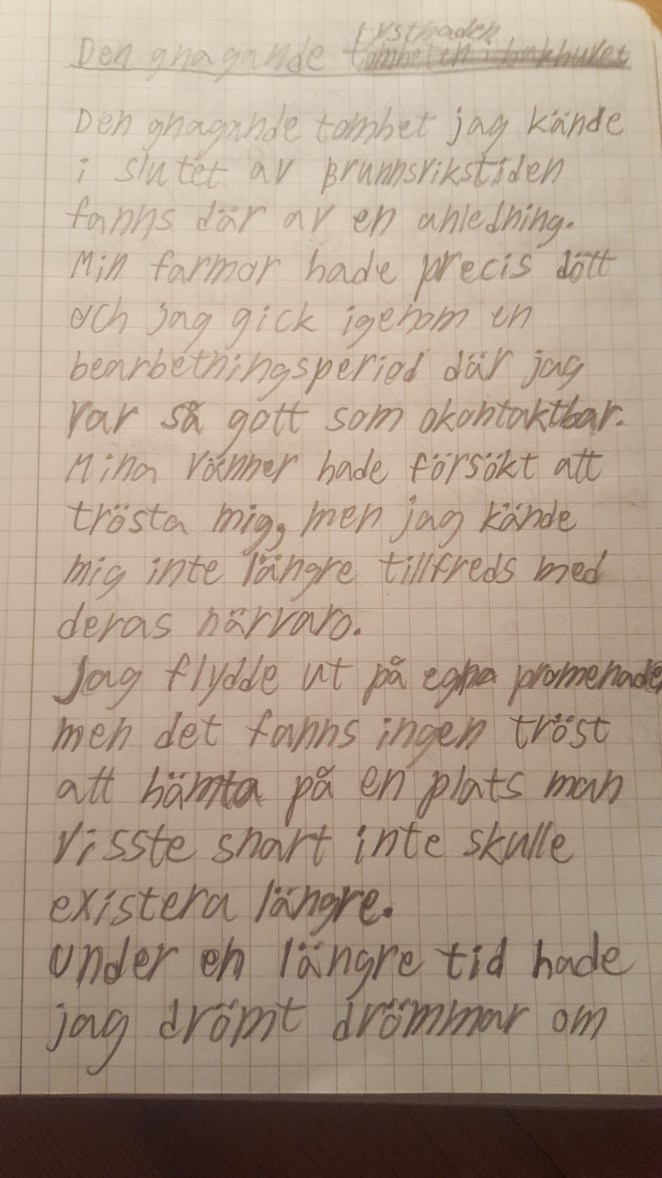 Den gnagande tystnaden
tomheten i bakhuvet
Den gnagande tomhet jag kände
i slutet av Brunnsrikstiden
fanns där av en anledning.
Min farmor hade precis dött
och jag gick igenom en
bearbetningsperiod där jag
var så gott som okontaktbar.
Mina vänner hade försökt att
trösta mig, men jag kände
mig inte längre tillfreds med
deras närvaro.
Jag flydde ut på egna promenader
men det fanns ingen tröst
att hämta på en plats man
visste snart inte skulle
existera längre.
Under en längre tid hade
jag drömt drömmar om